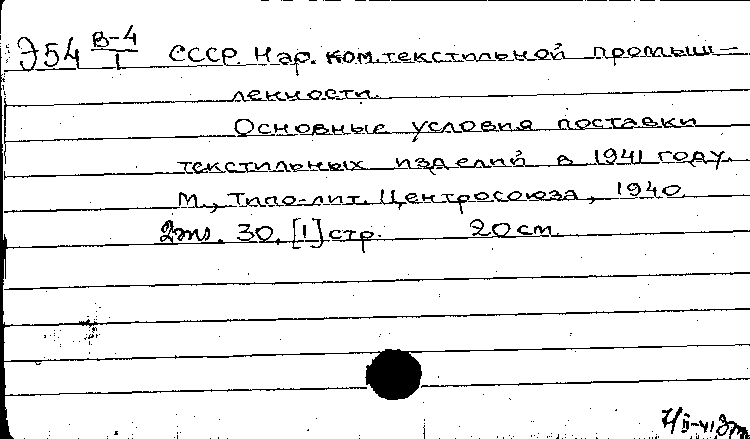 Э54 В-4/1 СССР. Нар. ком. текстильной промыш-
ленности.
Основные условия поставки
текстильных изделий в 1941 году.
М., Типо-лит. Центросоюза, 1940
30, [1] стр. 20 см.